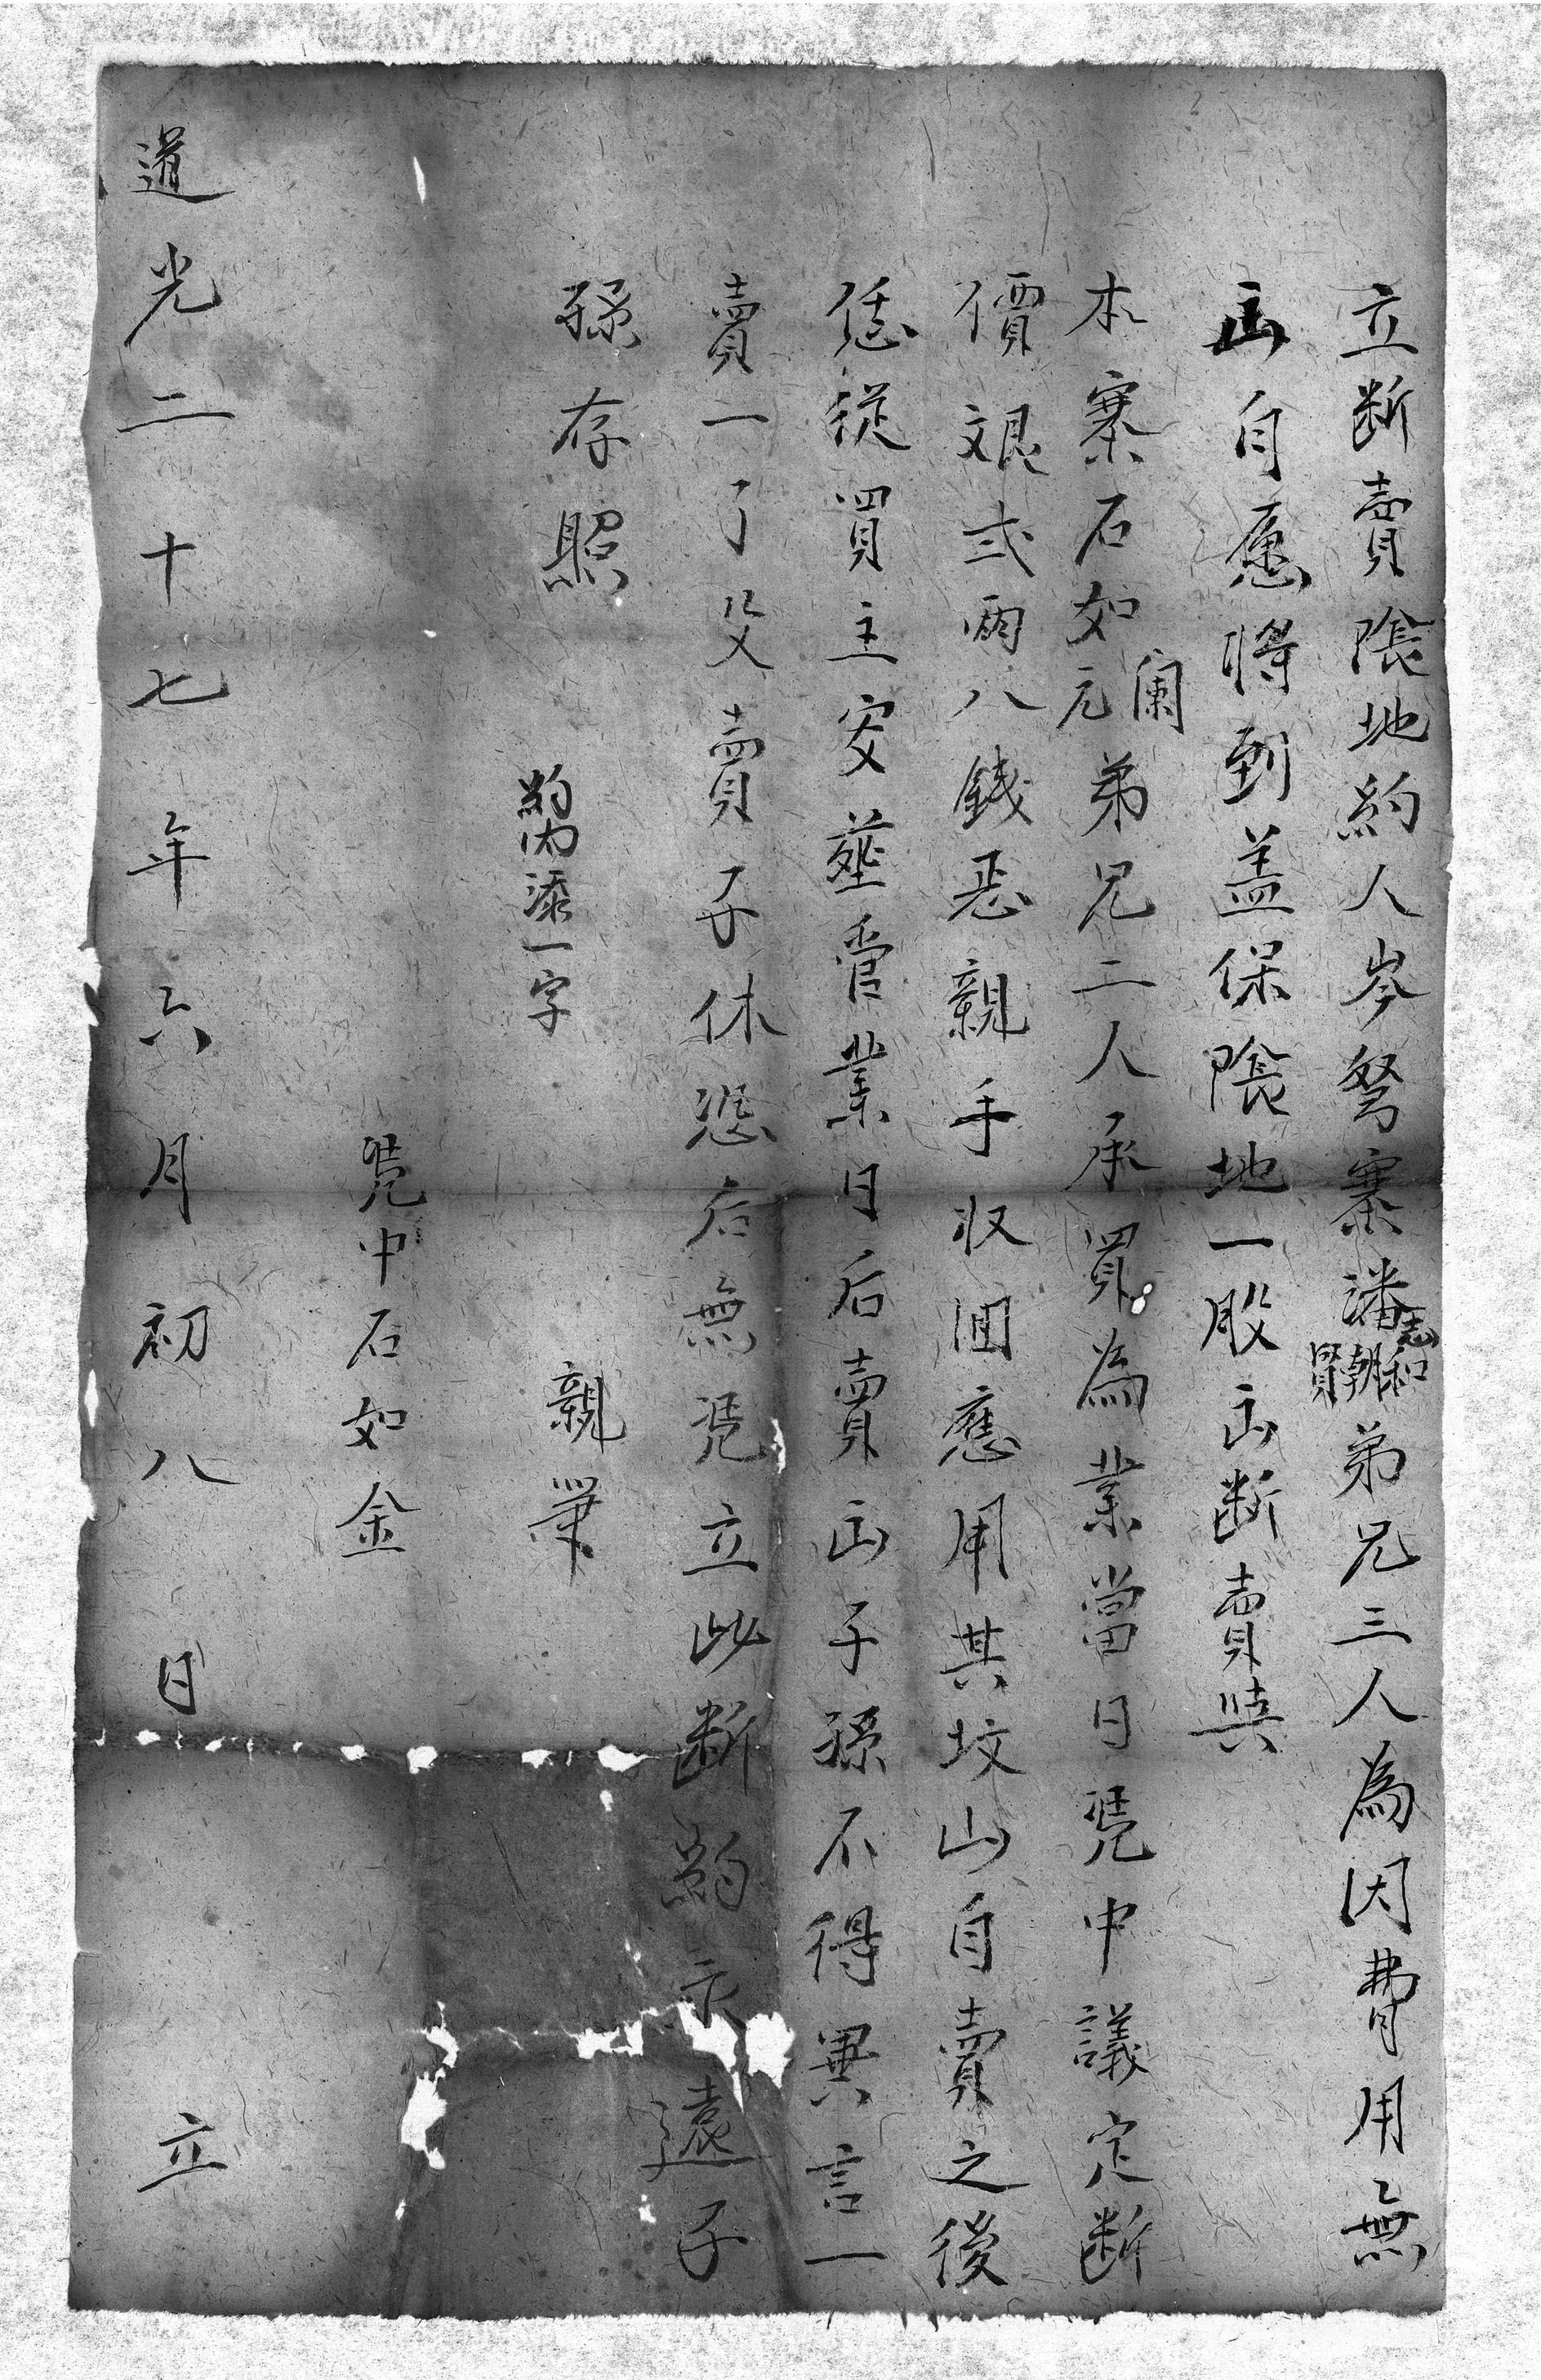 立断賣陰地約人岑努寨潘志和朝賢弟兄三人為因費用無
出自愿將到盖保陰地一股出断賣與
本寨石如蘭元弟兄二人承買為業當日凴中議定断
價艮弍兩八錢恶親手收囬應用其坟山自賣之後
恁從買主安塟管業日后賣出子孫不得異言一
賣一了父賣子休恐后無凴立此断約永遠子
孫存照
約内添一字
親筆
凴中石如金
道光二十七年六月初八日立